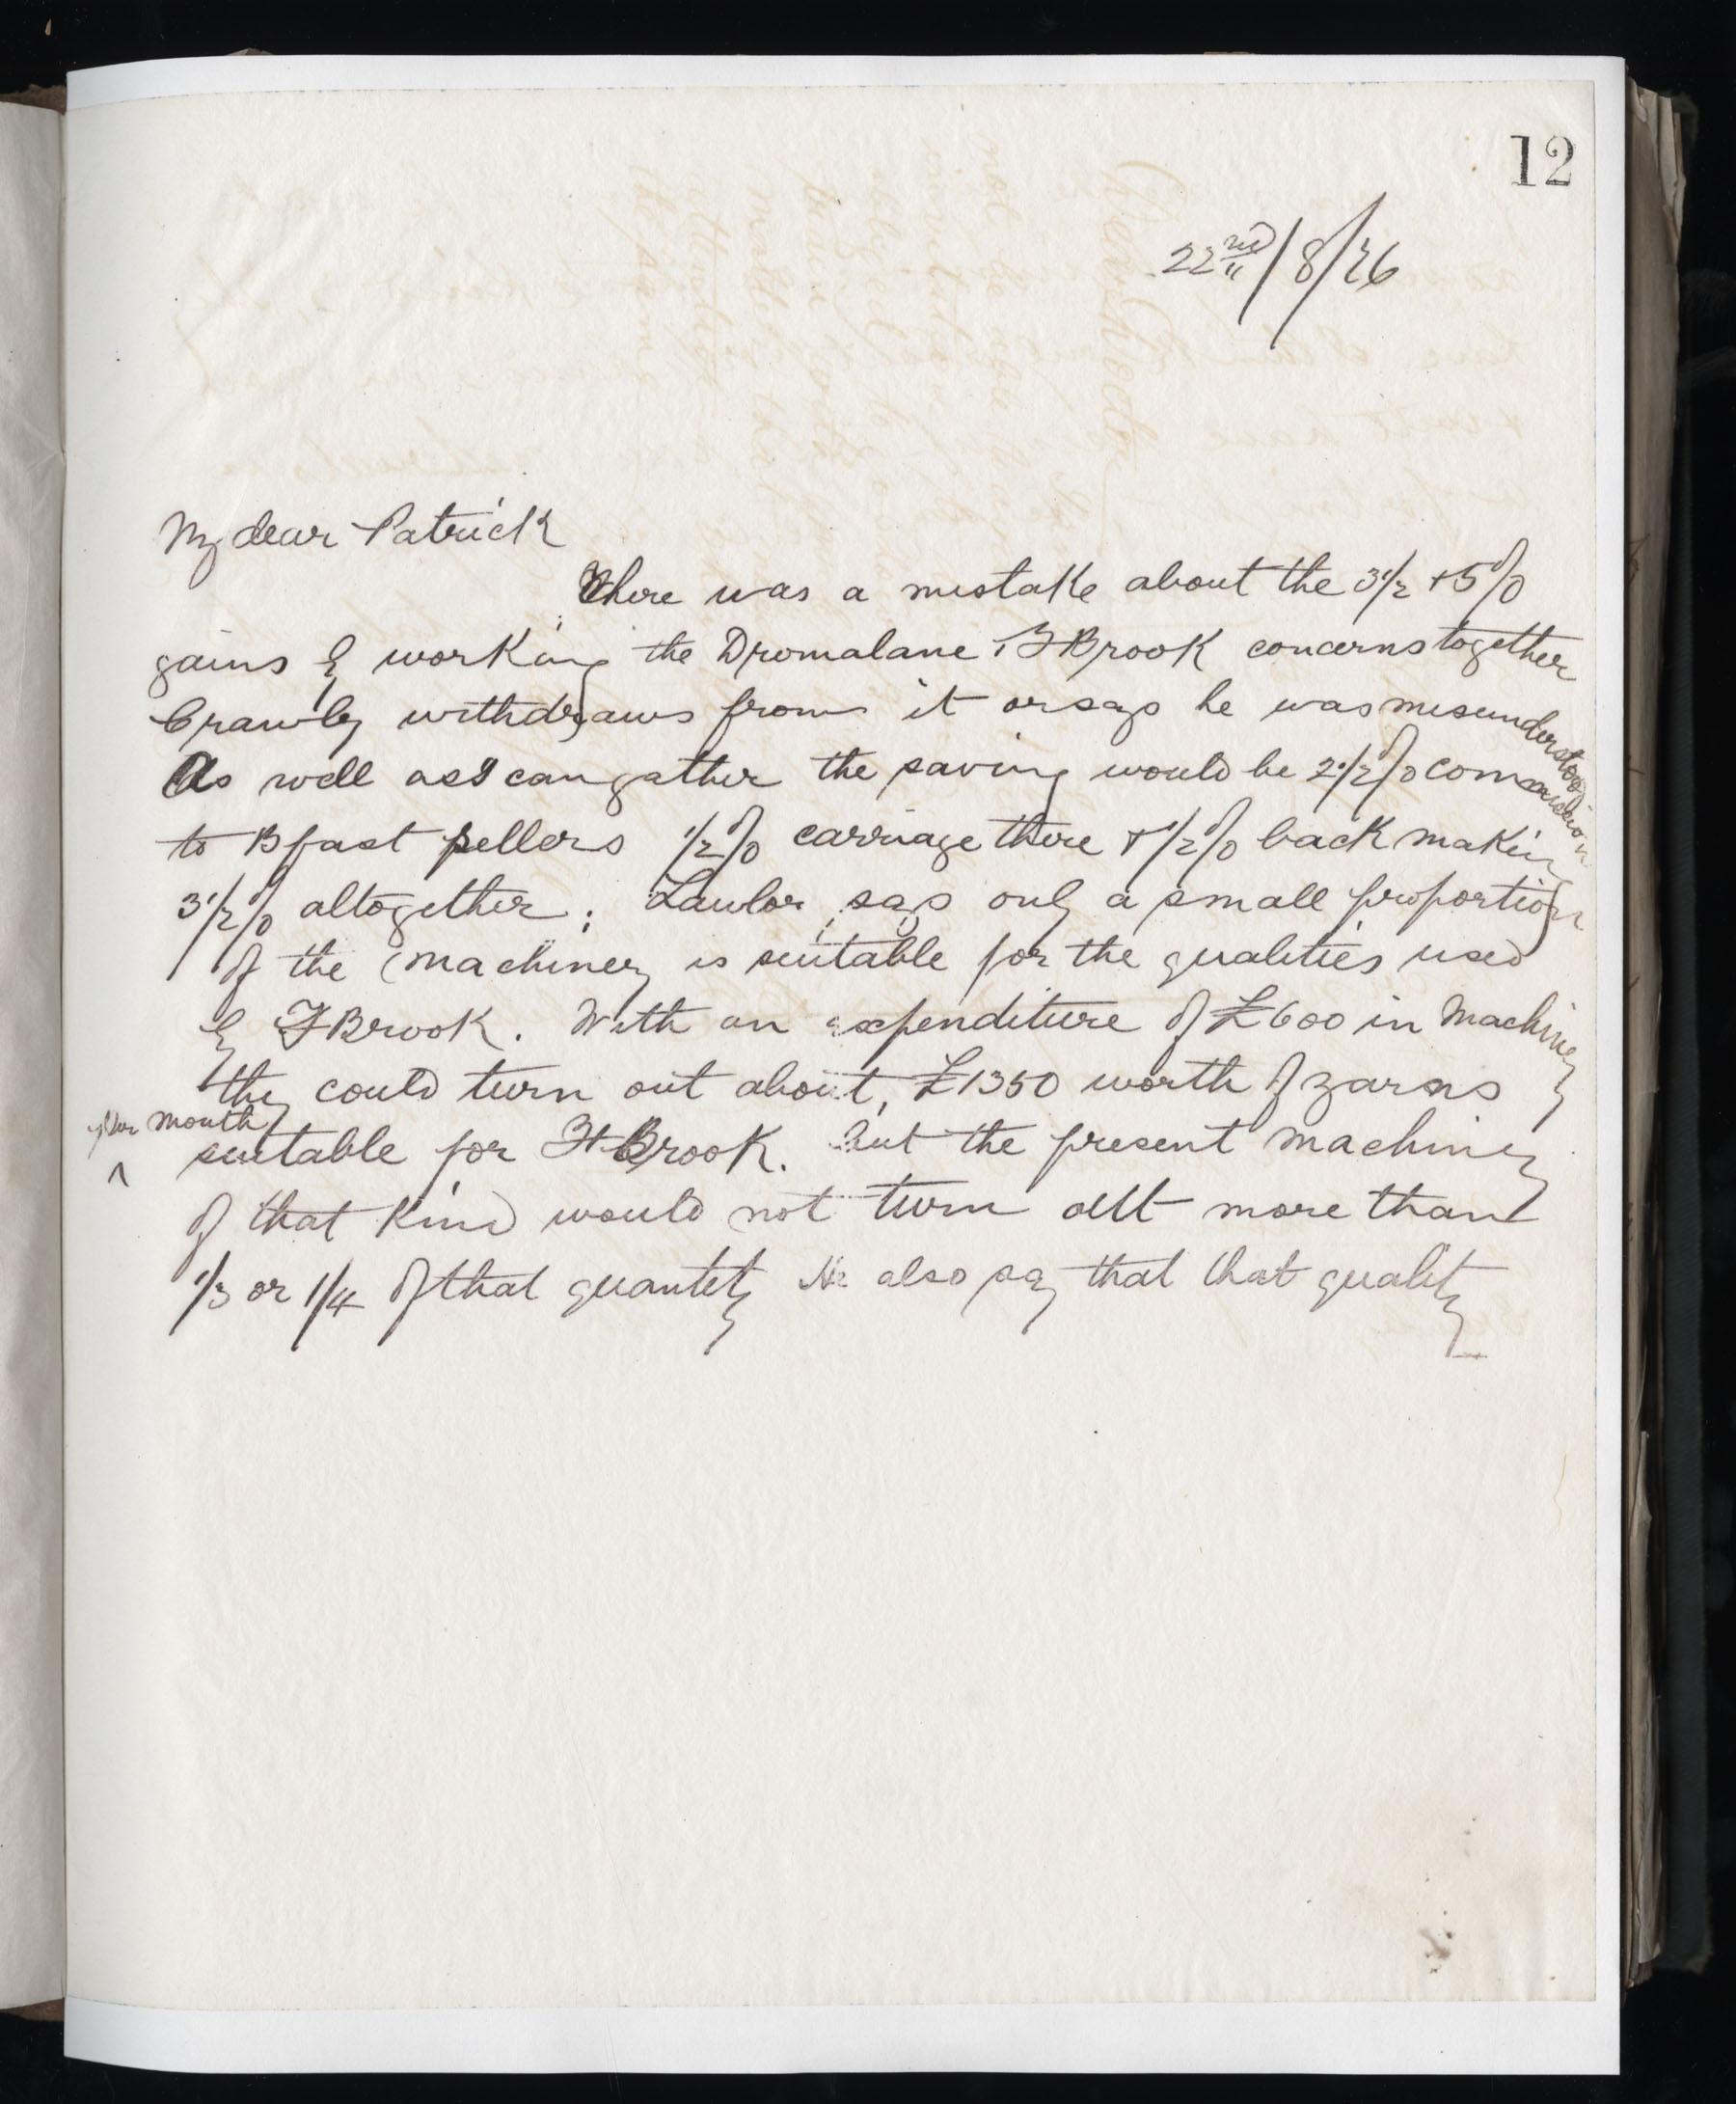 12
22nd/8/76
My dear Patrick
There was a mistake about the 3½ + 5%
gains by working the Dromalane & FBrook concerns together
Crawley withdraws from it or says he was misunderstood
As well as I can gather the saving would be 2½% commission
to Bfast sellers ½% carriage there & ½% back making
3½% altogether. Lawlor says only a small proportion
of the machinery is suitable for the qualities used
by FBrook. With an expenditure of £600 in Machinery
they could turn out about £1350 worth of yarns
per month
^ suitable for FBrook. But the present machinery
of that kind would not turn out more than
1/3 or 1/4 of that quantity He also say that that quality